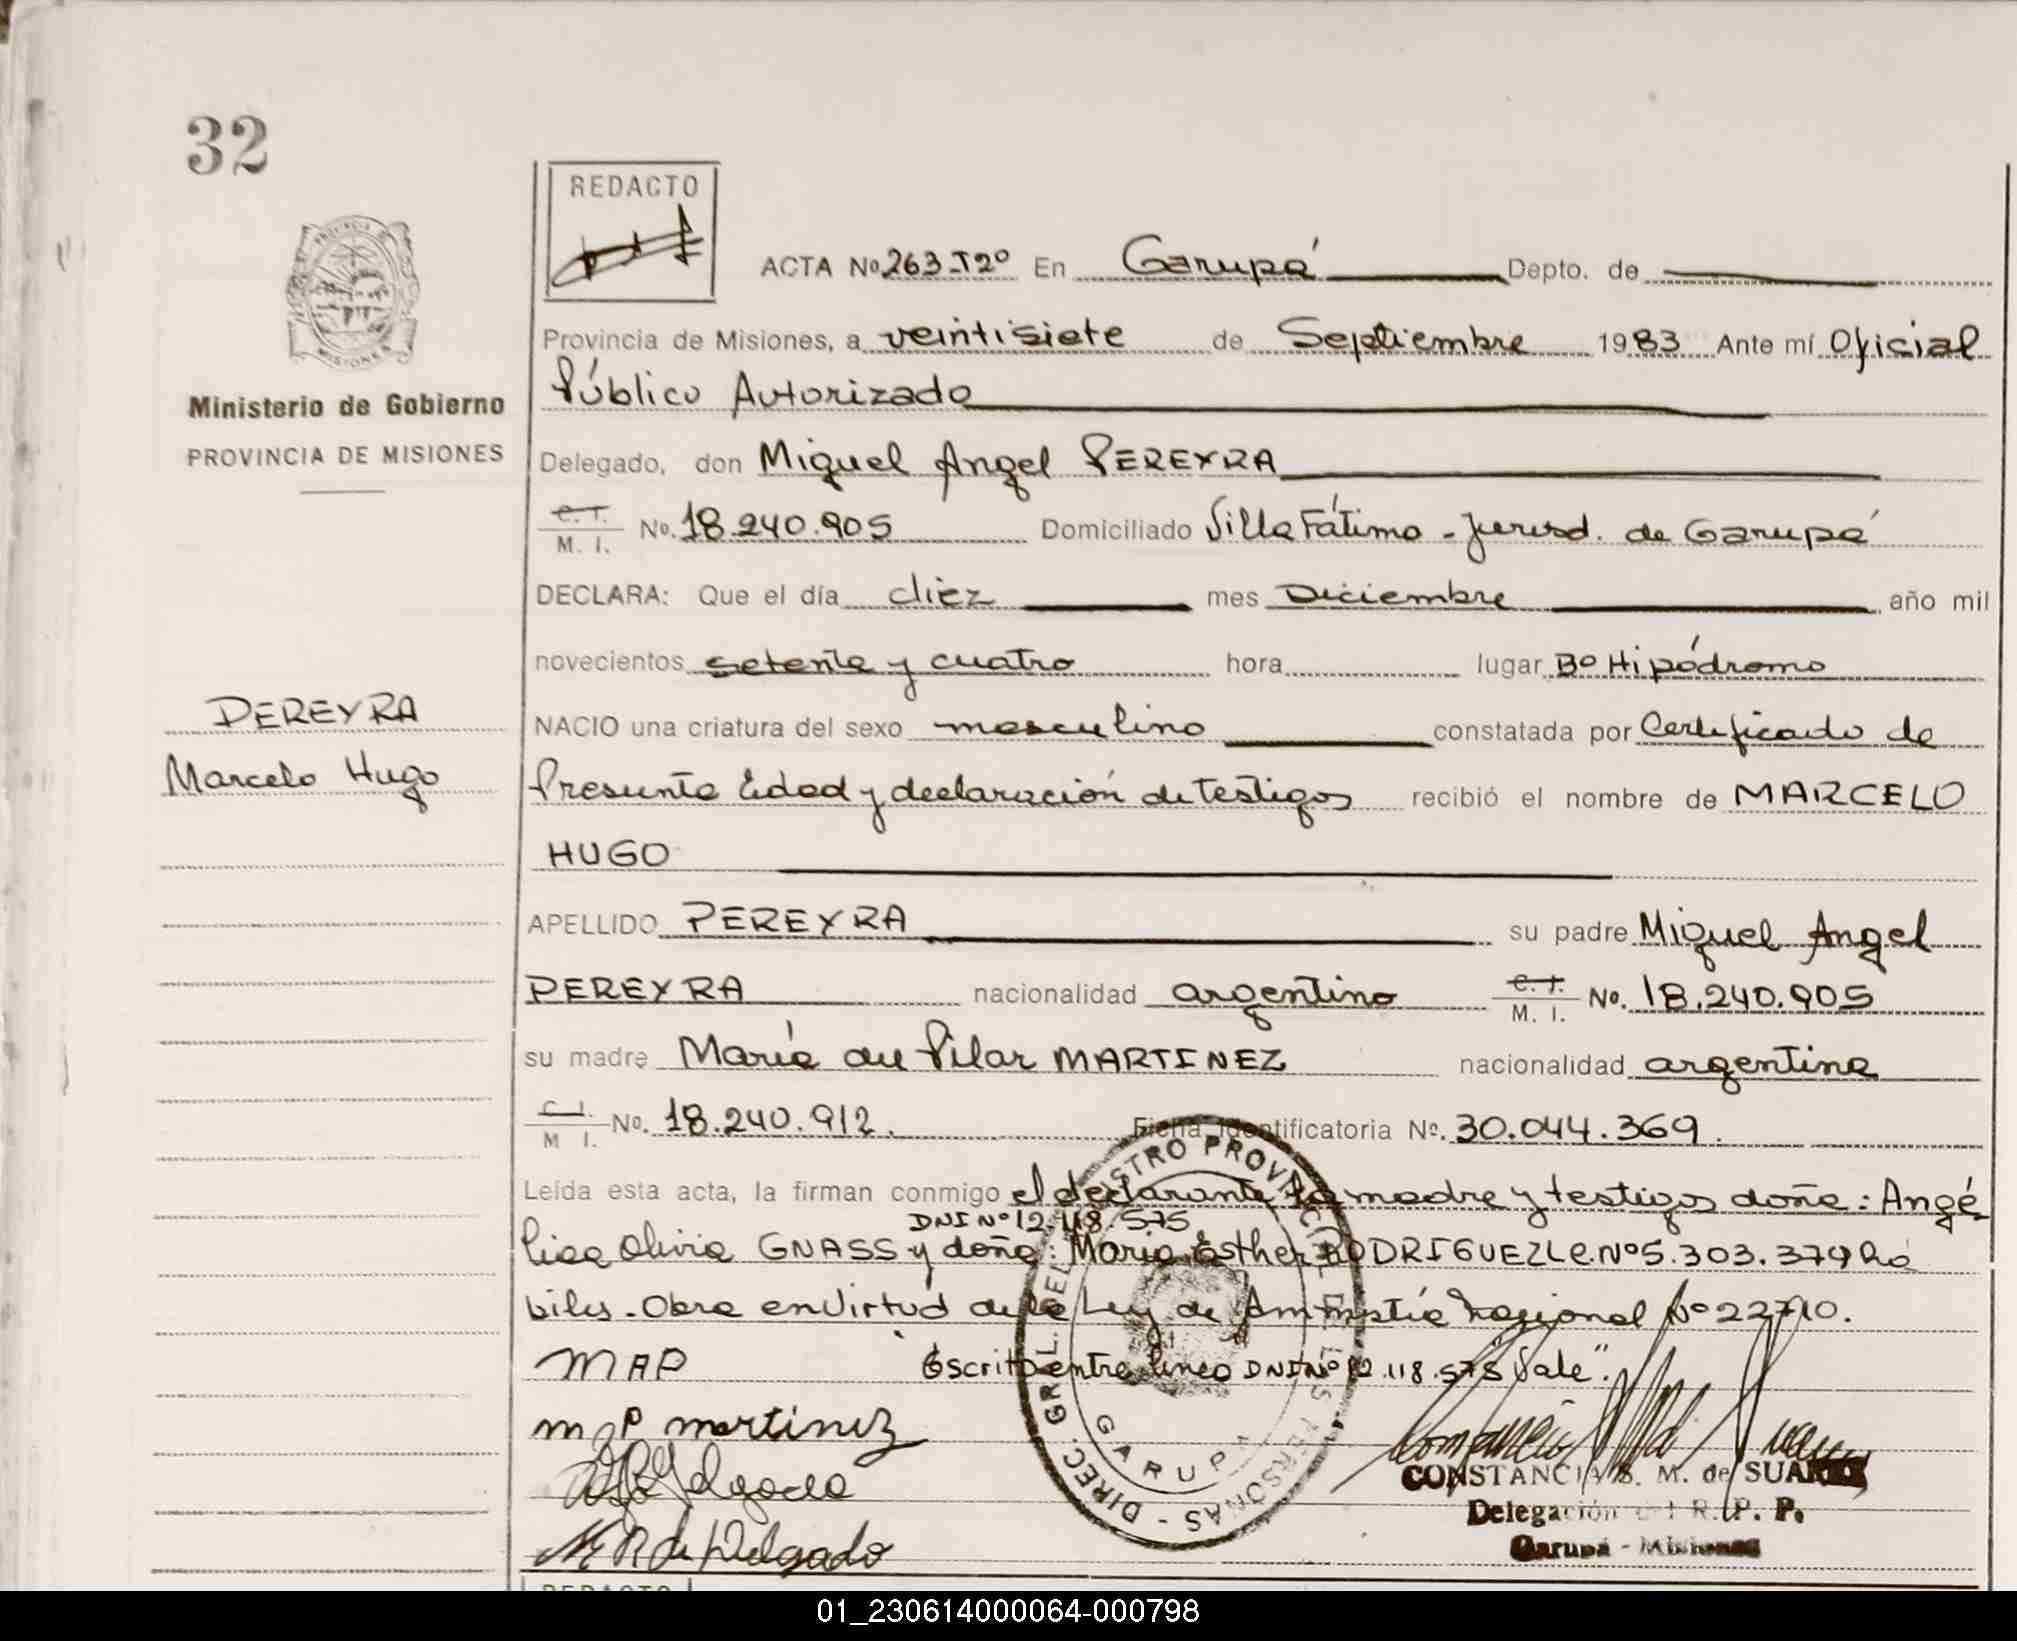 32
REDACTO
ACTA No 263-T2º En Garupá Depto. de
Provincia de Misiones, a veintisiete de Septiembre 1983 Ante mí Oficial
Público Autorizado
Ministerio de Gobierno
PROVINCIA DE MISIONES
Delegado, don Miguel Angel PEREYRA
C. I.
M. I. No. 18.240.905 Domiciliado Villa Fátima - Jurisd. de Garupá
DECLARA: Que el día diez mes Diciembre año mil
novecientos setenta y cuatro hora lugar Bº Hipódromo
PEREYRA
Marcelo Hugo
NACIO una criatura del sexo masculino constatada por Certificado de
Presunta Edad y declaración de testigos recibió el nombre de MARCELO
HUGO
APELLIDO PEREYRA su padre Miguel Angel
PEREYRA nacionalidad argentino C. I. M. I. No. 18.240.905
su madre María del Pilar MARTINEZ nacionalidad argentina
C. I.
M. I. No. 18.240.912. Ficha Identificatoria No. 30.044.369.
Leída esta acta, la firman conmigo el declarante la madre y testigos doña: Angé
DNI Nº 12.118.575
lica Olivia GNASS y doña: María Esther RODRIGUEZ L.C. Nº 5.303.379 há
biles. Obra en Virtud de la Ley de Amnistía Nacional Nº 22710.
MAP Escrito entre línea DNI Nº 12.118.575 Vale".
m P martinez
M R de Delgado
DIREC. GRL. DEL REGISTRO PROVINCIAL DE LAS PERSONAS -
GARUPA
CONSTANCIA S. M. de SUAREZ
Delegación del R. P. P.
Garupá - Misiones
REDACTO
01_230614000064-000798